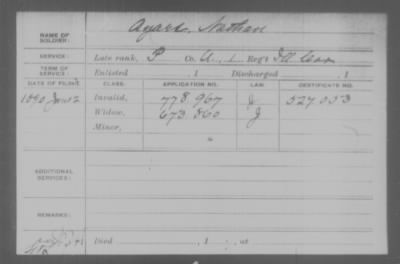 NAME OF SOLDIER: Ayars, Nathan
SERVICE: Late rank, P Co. A, 1 Reg't Ill
TERM OF SERVICE: Enlisted , 1 Discharged , 1
DATE OF FILING. CLASS. APPLICATION NO. LAW. CERTIFICATE NO.
1890 Invalid, 778.967 J 527.053
Widow, 673.860 J
Minor,
ADDITIONAL SERVICES:
REMARKS:
Died , 1 , at